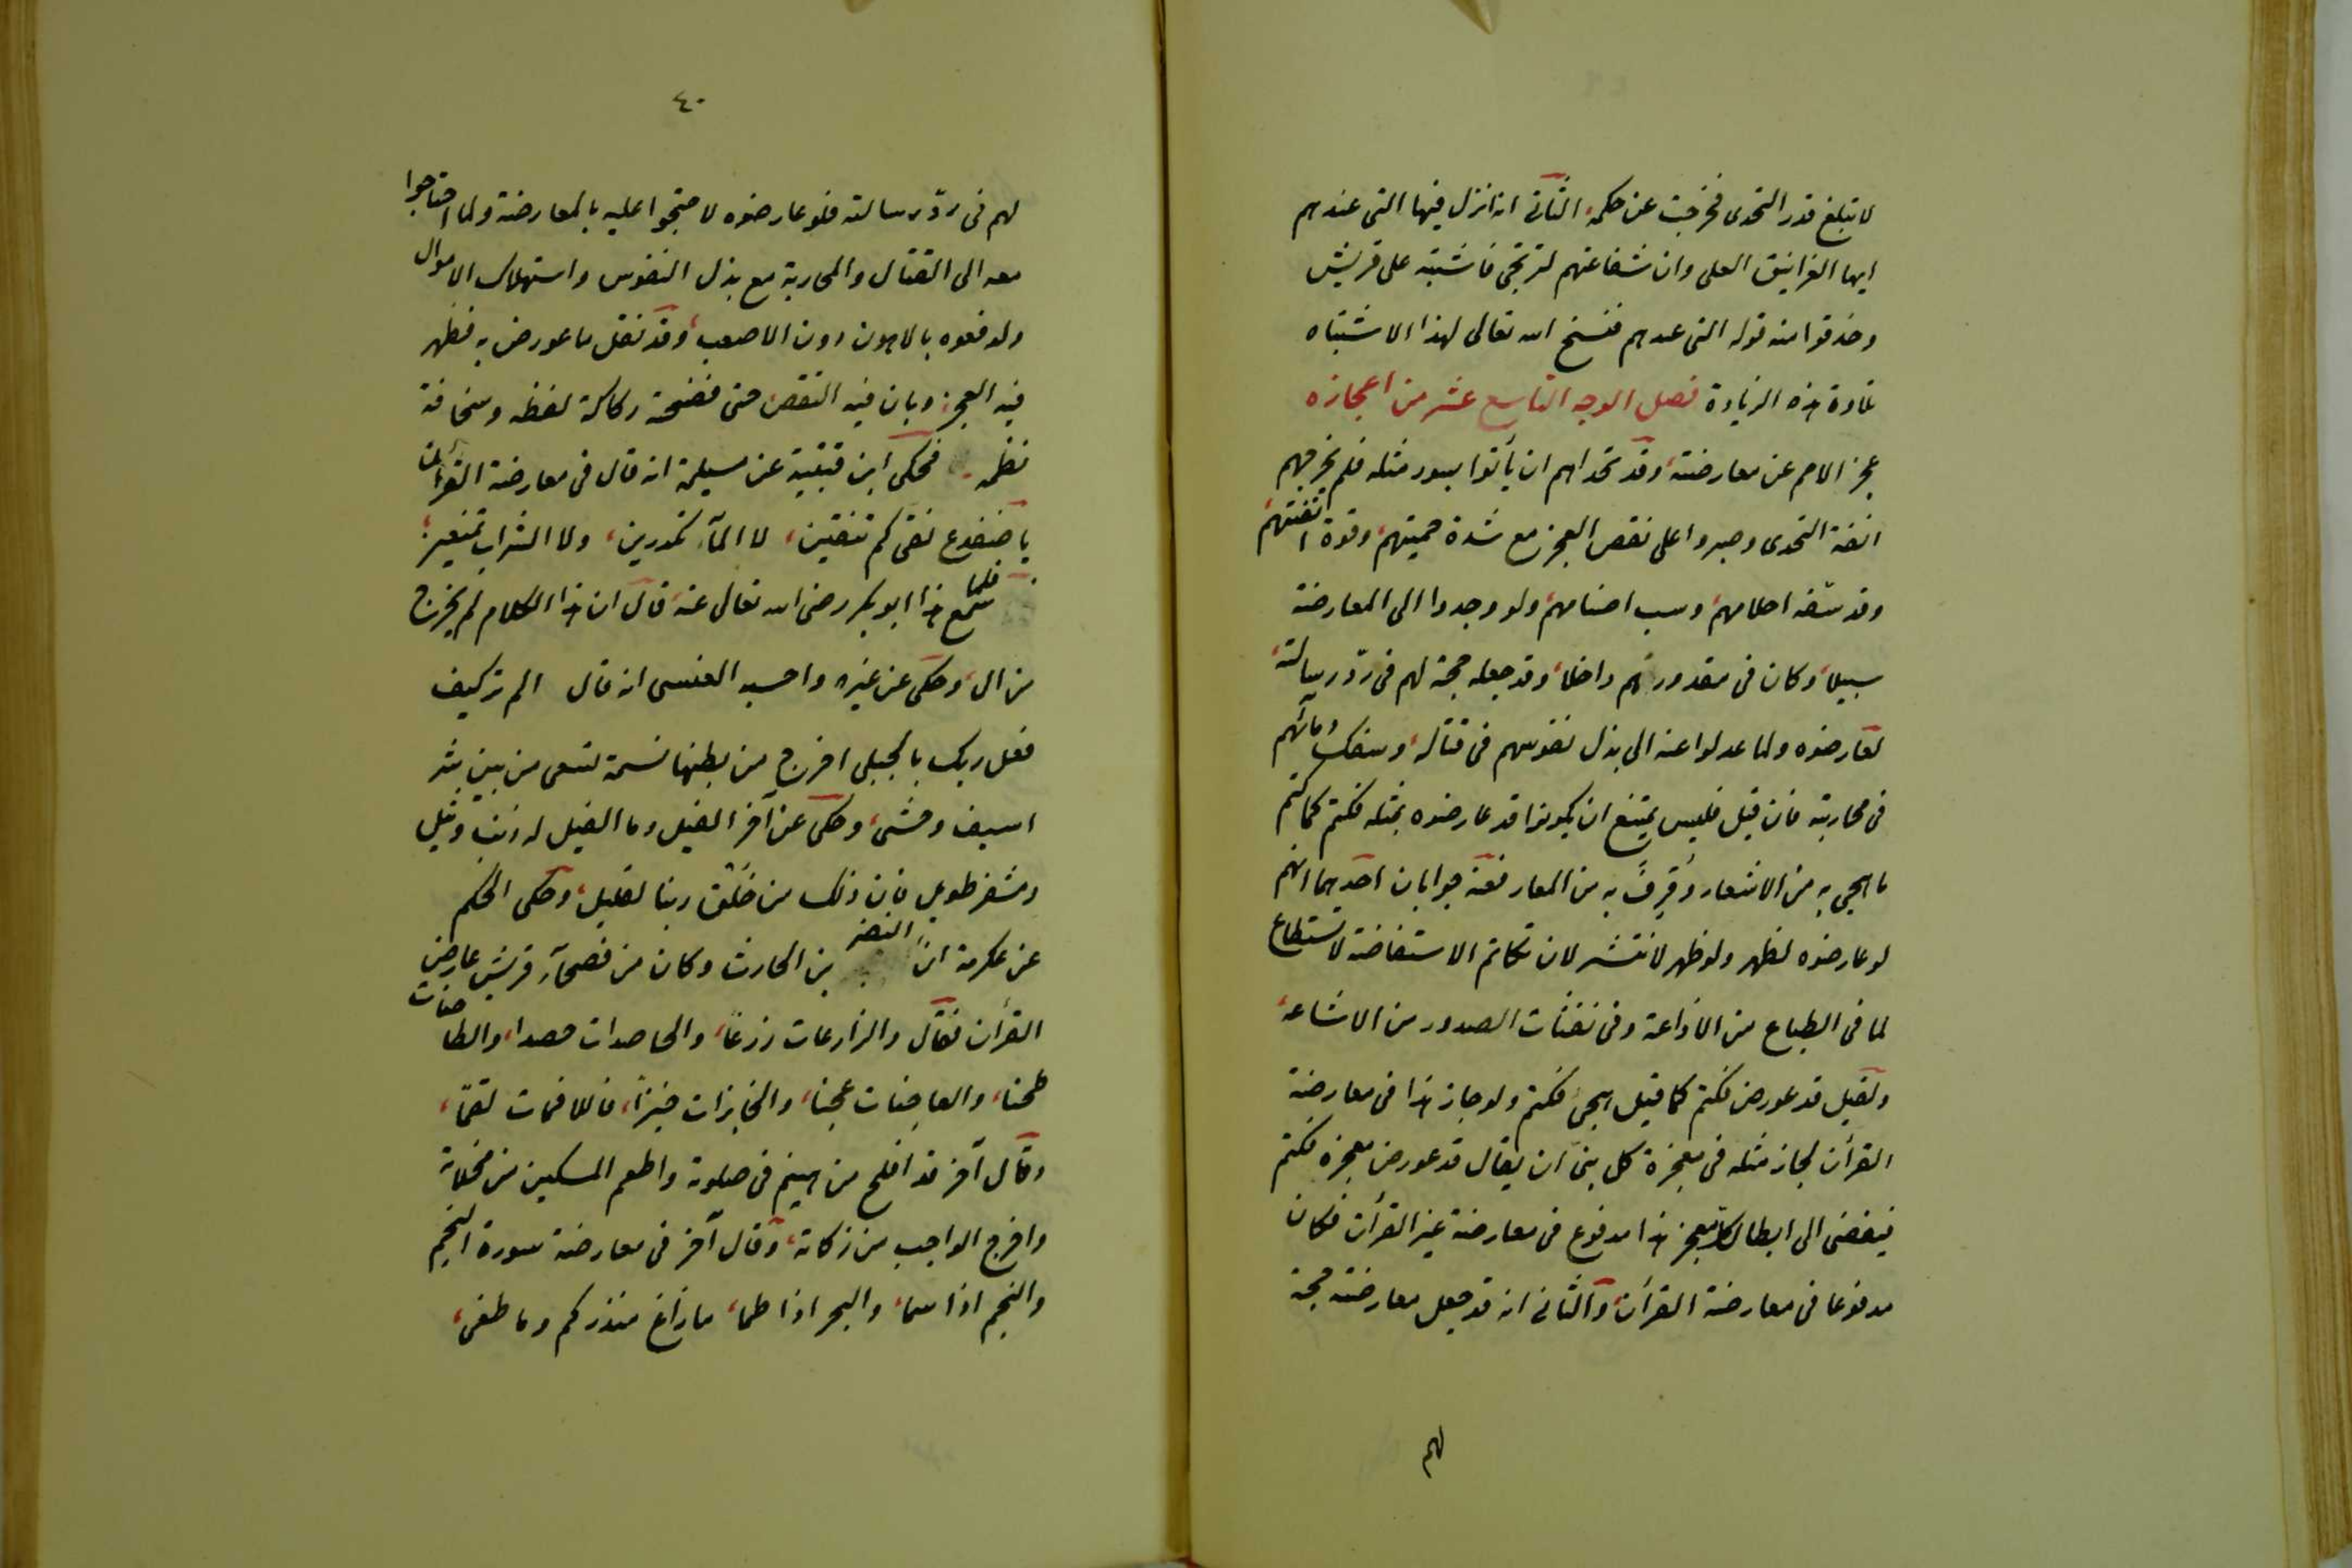 لا تبلغ قدر التحدى فخرجت عن حكمه الثانى انه انزل فيها التى عندهم
ايها الغرانيق العلى وان شفاعتهم لترتجى فاشتبه على قريش
وحذفوا منه قوله التى عندهم فنسخ الله تعالى لهذا الاشتباه
تلاوة هذه الزيادة فصل الوجه التاسع عشر من اعجازه
عجز الامم عن معارضته وقد تحداهم ان يأتوا بسورة مثله فلم تخرجهم
انفة التحدى وصبروا على نقص العجز مع شدة حميتهم وقوة انفتهم
وقد سفّه احلامهم وسب اصنامهم ولو وجدوا الى المعارضة
سبيلا وكان فى مقدورهم داخلا وقد جعله حجة لهم فى ردّ رسالته
لعارضوه ولما عدلوا عنه الى بذل نفوسهم فى قتاله وسفك دمائهم
فى محاربته فان قيل فليس يمتنع ان يكونوا قد عارضوه بمثله فكتم كما كتم
ما هجى به من الاشعار وقرف به من المعار فعنه جوابان احدهما انهم
لو عارضوه لظهر ولو ظهر لانتشر لان تكاتم الاستفاضة لا يستطاع
لما فى الطباع من الاذاعة وفى نفثات الصدور من الاشاعة
ولقيل قد عورض فكتم كما قيل هجى فكتم ولو جاز هذا فى معارضة
القرأن لجاز مثله فى معجزة كل نبى ان يقال قد عورض معجزه فكتم
فيفضى الى ابطال كل معجز هذا مدفوع فى معارضة غير القرأن فكان
مدفوعا فى معارضة القرأن والثانى انه قد جعل معارضته حجة
لهم
٤٠
لهم فى ردّ رسالته فلو عارضوه لاحتجوا عليه بالمعارضة ولما احتاجوا
معه الى القتال والمحاربة مع بذل النفوس واستهلاك الاموال
ولدفعوه بالاهون دون الاصعب وقد نقل ما عورض به فظهر
فيه العجز وبان فيه النقص حتى فضحته ركاكة لفظه وسخافة
نظمه فحكى ابن قتيبة عن مسيلمة انه قال فى معارضة القرأن
يا ضفدع نقى كم تنقين لا المآء تكدرين ولا الشراب تمنعين
فلما سمع هذا ابو بكر رضى الله تعالى عنه قال ان هذا الكلام لم يخرج
من ال وحكى عن غيره واحسبه العنسى انه قال الم تر كيف
فعل ربك بالحبلى اخرج من بطنها نسمة تسعى من بين
وحشى وحكى عن آخر الفيل وما الفيل له ذنب وثيل
ومشفر طويل فان ذلك من خلق ربنا لقليل وحكى الحكم
عن عكرمة ان النضر بن الحارث وكان من فصحآء قريش عارض
القرأن فقال والزارعات زرعا والحاصدات حصدا والطاحنات
طحنا والعاجنات عجنا والخابزات خبزا فاللاقمات لقما
وقال آخر قد افلح من هينم فى صلوته واطعم المسكين من مخلاته
واخرج الواجب من زكاته وقال آخر فى معارضة سورة النجم
والنجم اذا سما والبحر اذا طما ما زاغ منذركم وما طغى